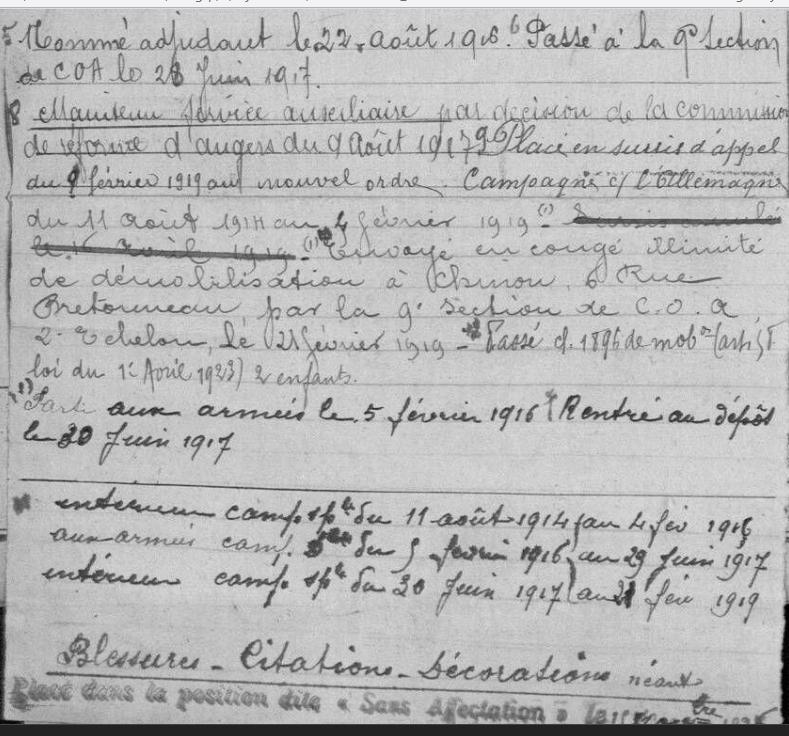 5 Nommé adjudant le 22 août 1916. 6 Passé à la 9e Section
de COA le 28 Juin 1917.
8 Maintenu Service auxiliaire par décision de la commission
de réforme d'angers du 9 Août 1917 Placé en sursis d'appel
du 9 février 1919 au nouvel ordre. Campagne c/ l'Allemagne
du 11 août 1914 au 4 février 1919 (1)
(1) Envoyé en congé illimité
de démobilisation à Chinon, 6 Rue
Bretonneau, par la 9e Section de C.O.A
2e Echelon, le 21 février 1919 - Passé cl. 1896 de mobon (art. 58
loi du 1er Avril 1923) 2 enfants.
(1) Parti aux armées le 5 février 1916 Rentré au dépôt
le 30 Juin 1917
intérieur camp. sple du 11 août 1914 au 4 fév 1916
aux armées camp. du 5 février 1916 au 29 Juin 1917
intérieur camp. sple du 30 Juin 1917 au 21 fév 1919
Blessures - Citations - Décorations néant
Placé dans la position dite « Sans Affectation » le